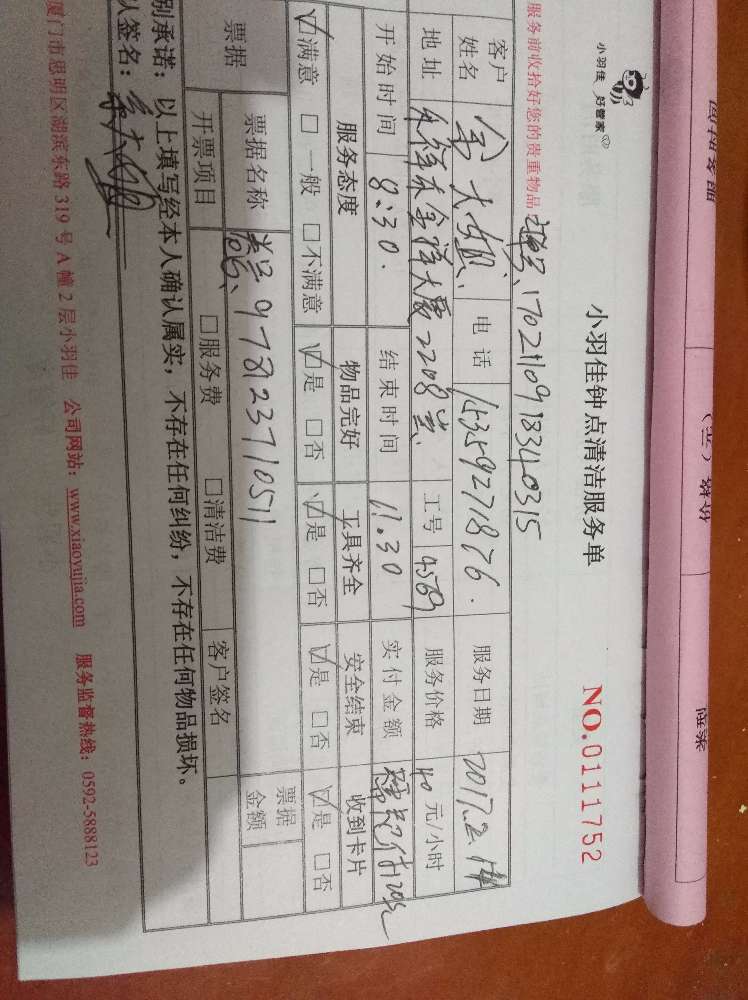 小羽佳 好管家
小羽佳钟点清洁服务单
NO.0111752
服务前收拾好您的贵重物品
1702110918340315
客户姓名 金大姐 电话 15359271876. 服务日期 2017.2.14
地址 大厦2208 工号 4569 服务价格 40 元/小时
开始时间 8:30. 结束时间 11.30 实付金额
服务态度 物品完好 工具齐全 安全结束 收到卡片
☑满意 □一般 □不满意 ☑是 □否 ☑是 □否 ☑是 □否 ☑是 □否
票据 票据名称 978123710511 票据金额
开票项目 □服务费 □清洁费 客户签名
别承诺:以上填写经本人确认属实,不存在任何纠纷,不存在任何物品损坏。
人签名:
厦门市思明区湖滨东路 319 号 A 幢 2 层小羽佳 公司网站:www.xiaoyujia.com 服务监督热线:0592-5888123